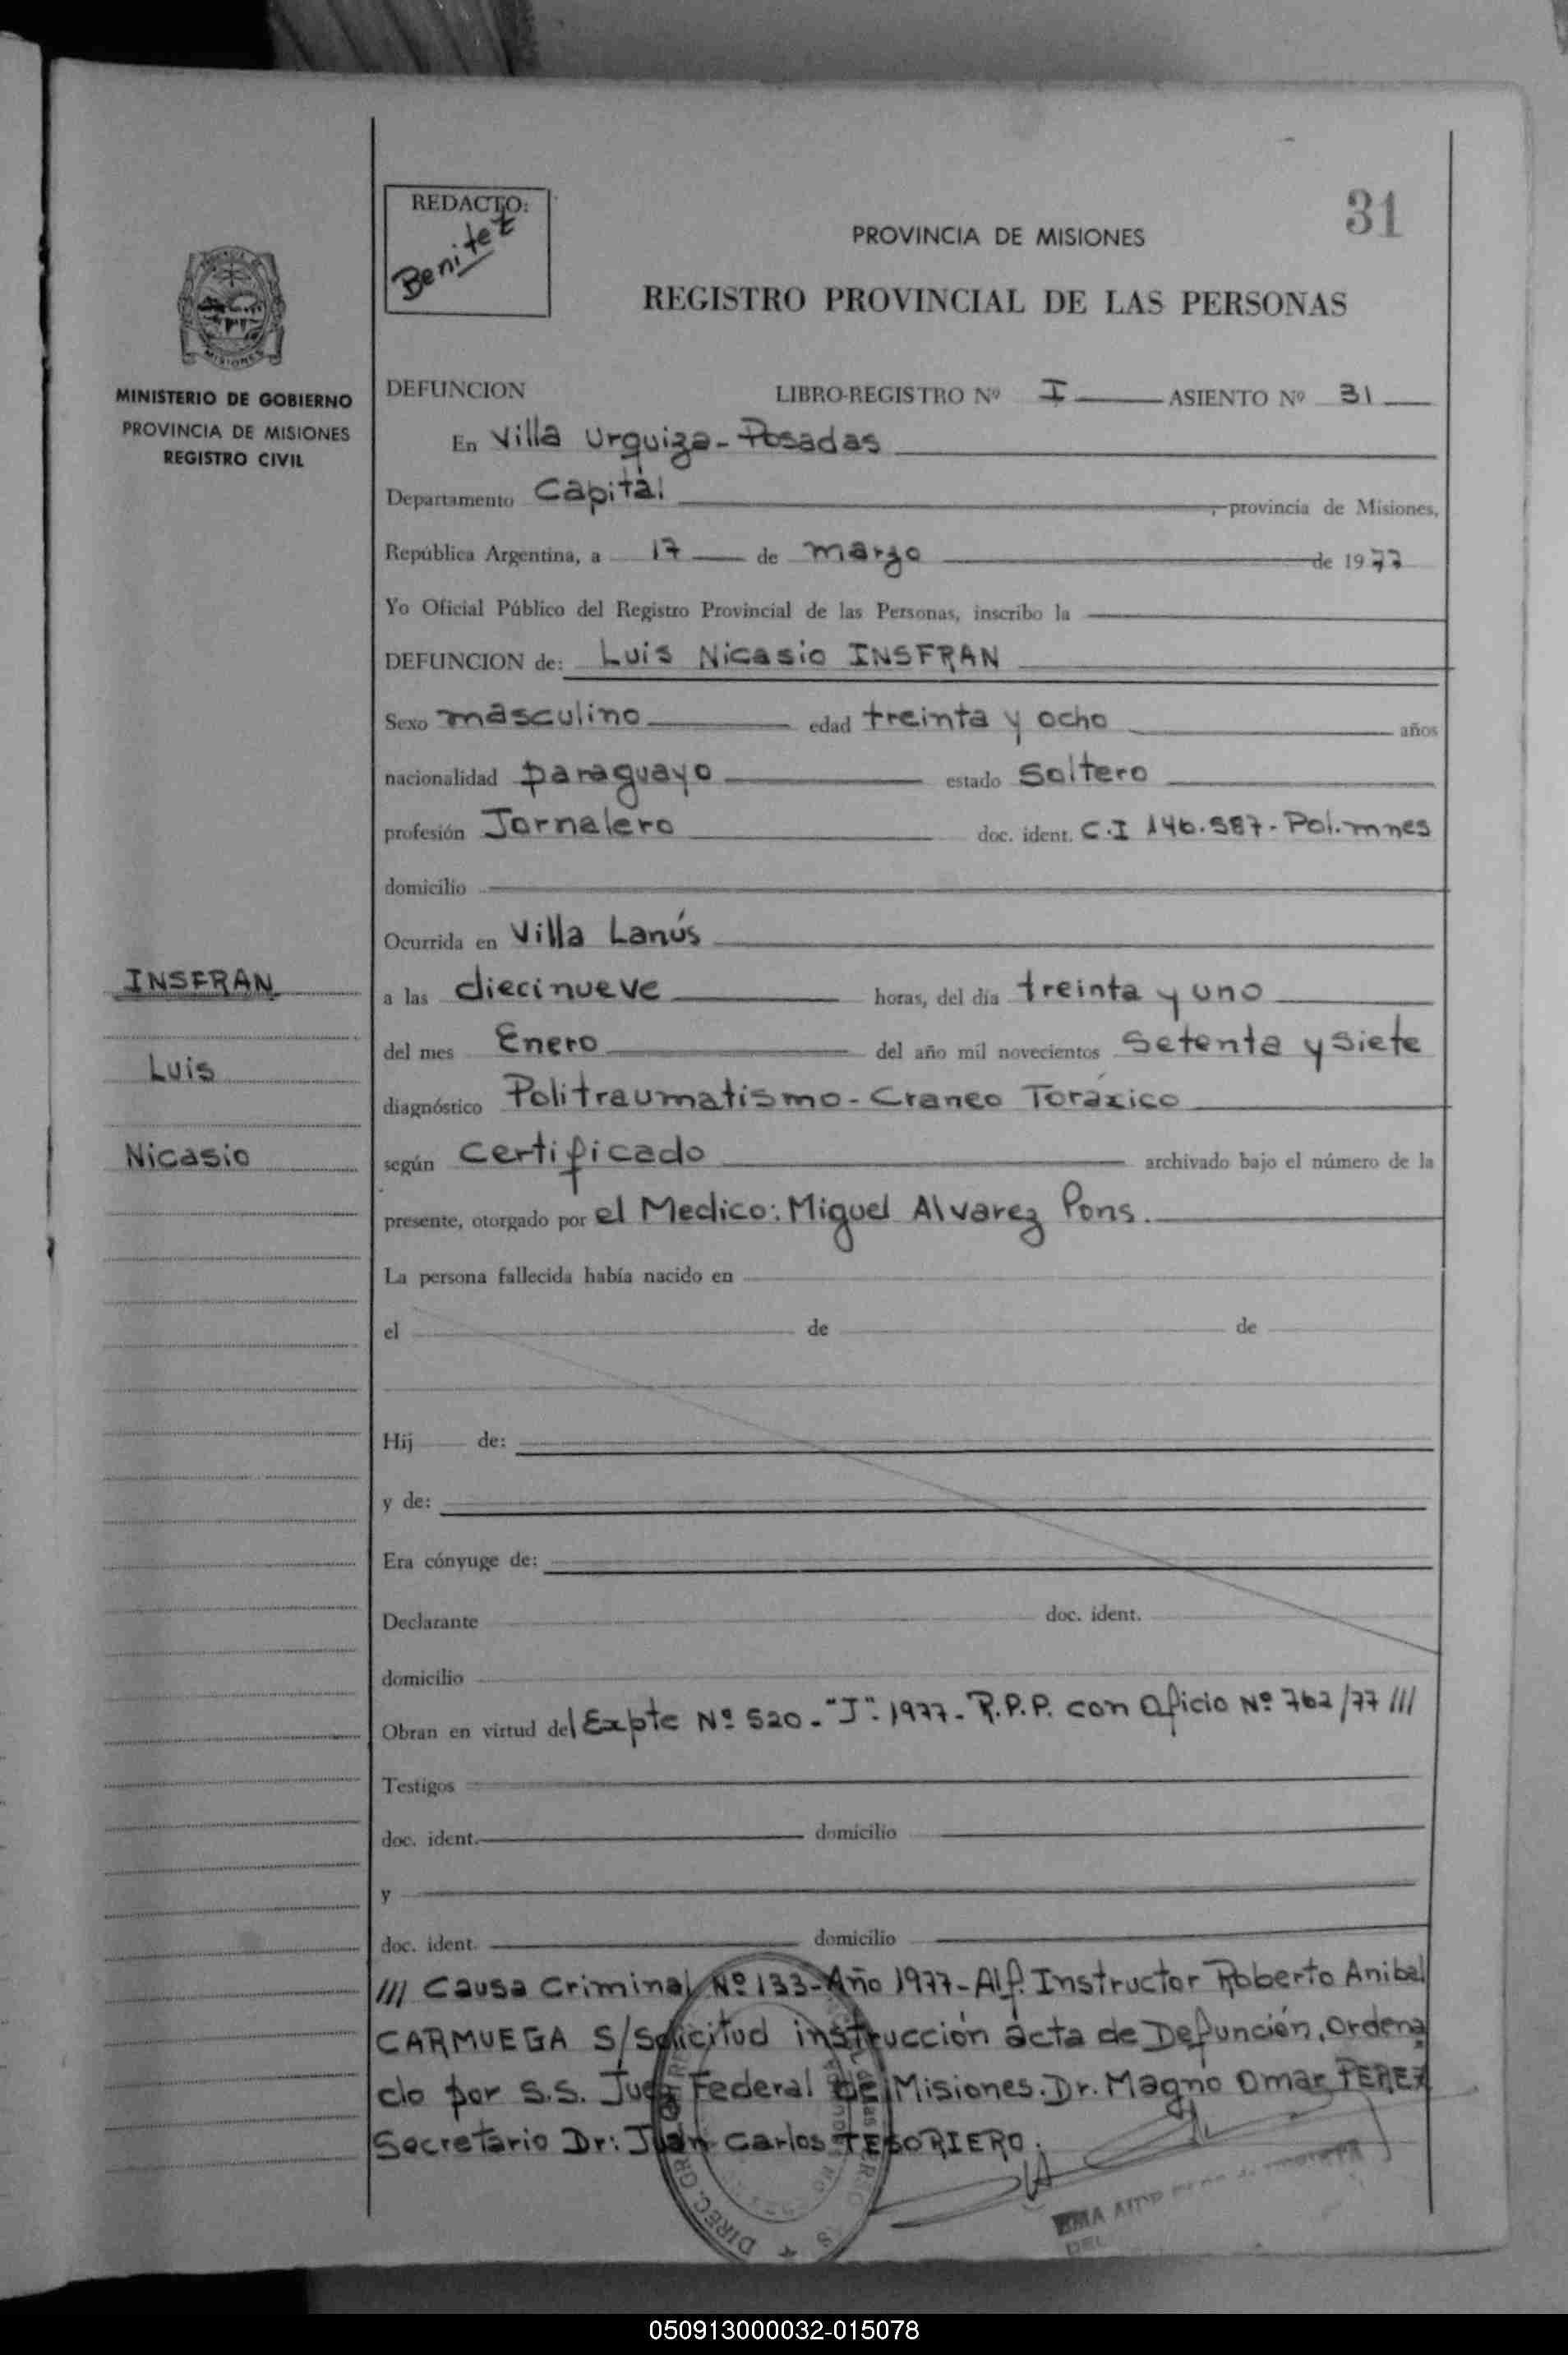 31
REDACTO:
Benitez
PROVINCIA DE MISIONES
REGISTRO PROVINCIAL DE LAS PERSONAS
MISIONES
MINISTERIO DE GOBIERNO
PROVINCIA DE MISIONES
REGISTRO CIVIL
DEFUNCION LIBRO-REGISTRO Nº I ASIENTO Nº 31
En Villa Urquiza - Posadas
Departamento Capital, provincia de Misiones,
República Argentina, a 17 de marzo de 1977
Yo Oficial Público del Registro Provincial de las Personas, inscribo la
DEFUNCION de: Luis Nicasio INSFRAN
Sexo masculino edad treinta y ocho años
nacionalidad paraguayo estado Soltero
profesión Jornalero doc. ident. C.I 146.587 - Pol. mnes
domicilio
Ocurrida en Villa Lanús
INSFRAN
a las diecinueve horas, del día treinta y uno
del mes Enero del año mil novecientos Setenta y Siete
Luis
diagnóstico Politraumatismo - Craneo Toráxico
Nicasio
según certificado archivado bajo el número de la
presente, otorgado por el Medico: Miguel Alvarez Pons.
La persona fallecida había nacido en
el de de
Hij de:
y de:
Era cónyuge de:
Declarante doc. ident.
domicilio
Obran en virtud del Expte Nº 520 - "J" - 1977 - R.P.P. con Oficio Nº 762/77 ///
Testigos
doc. ident. domicilio
y
doc. ident. domicilio
/// Causa Criminal Nº 133 - Año 1977 - Alf. Instructor Roberto Anibal
CARMUEGA S/Solicitud instrucción acta de Defunción, Ordena
do por S.S. Juez Federal de Misiones. Dr. Magno Omar PEREZ
Secretario Dr: Juan Carlos TESORIERO.
DIREC. GR
050913000032-015078